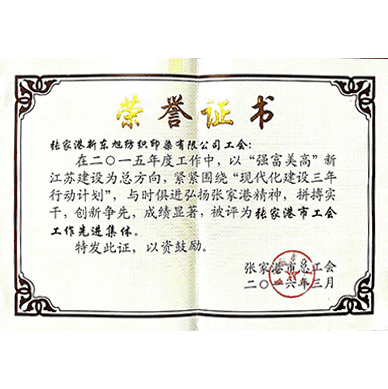 荣誉证书
张家港新东旭纺织印染有限公司工会：
在二〇一五年度工作中，以“强富美高”新
江苏建设为总方向，紧紧围绕“现代化建设三年
行动计划”，与时俱进弘扬张家港精神，拼搏实
干，创新争先，成绩显著，被评为张家港市工会
工作先进集体。
特发此证，以资鼓励。
张家港市总工会
二〇一六年三月